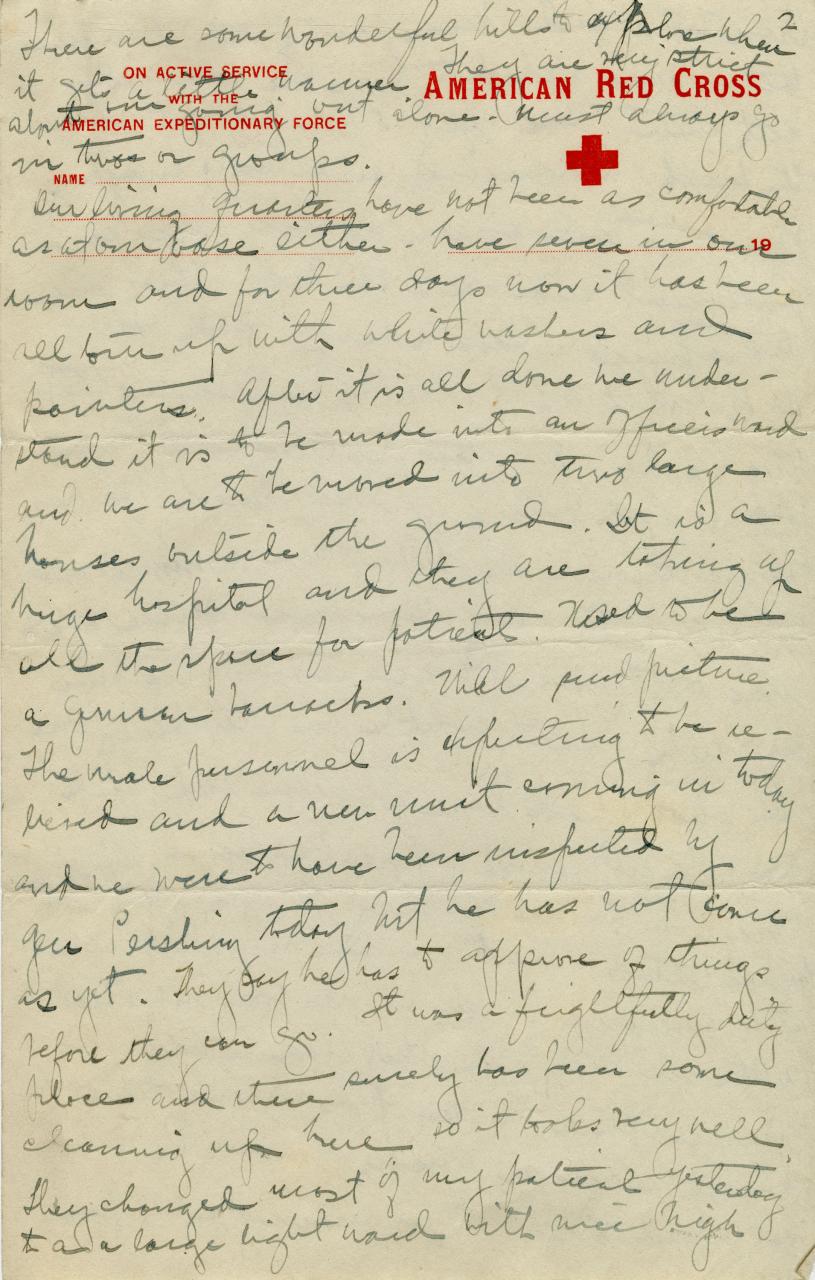 2
There are some wonderful hills to explore when
it gets a little warmer. They are very strict
about our going out alone - must always go
in twos or groups.
ON ACTIVE SERVICE
WITH THE
AMERICAN EXPEDITIONARY FORCE
AMERICAN RED CROSS
NAME
19
Our living quarters have not been as comfortable
as at our base either - have seven in our
room and for three days now it has been
all torn up with white washers and
painters. After it is all done we under-
stand it is to be made into an Officers ward
and we are to be moved into two large
houses outside the ground. It is a
huge hospital and they are taking up
all the space for patients. Used to be
a German barracks. Will send picture.
The male personnel is expecting to be re-
lieved and a new unit coming in today
and we were to have been inspected by
Gen Pershing today but he has not come
as yet. They say he has to approve of things
before they can go. It was a frightfully dirty
place and there surely has been some
cleaning up here so it looks very well.
They changed most of my patients yesterday
to a large light ward with nice high